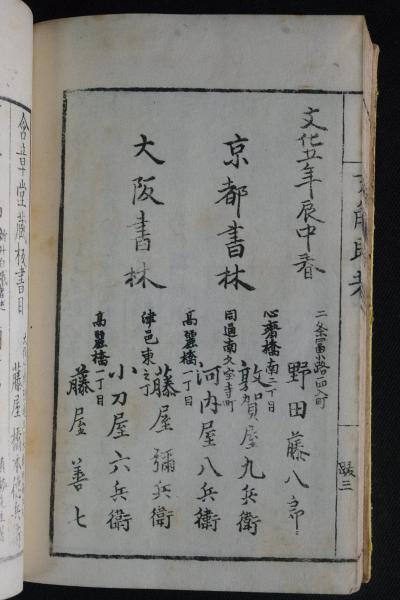 文化五年辰中春
京都書林
二条冨小路西入町
野田藤八郎
大阪書林
心齋橋南二丁目
敦賀屋九兵衛
同通南久宝寺町
河内屋八兵衛
高麗橋一丁目
藤屋彌兵衛
伊邑東之丁
小刀屋六兵衛
高麗橋一丁目
藤屋善七
跋三
含章堂藏板書目